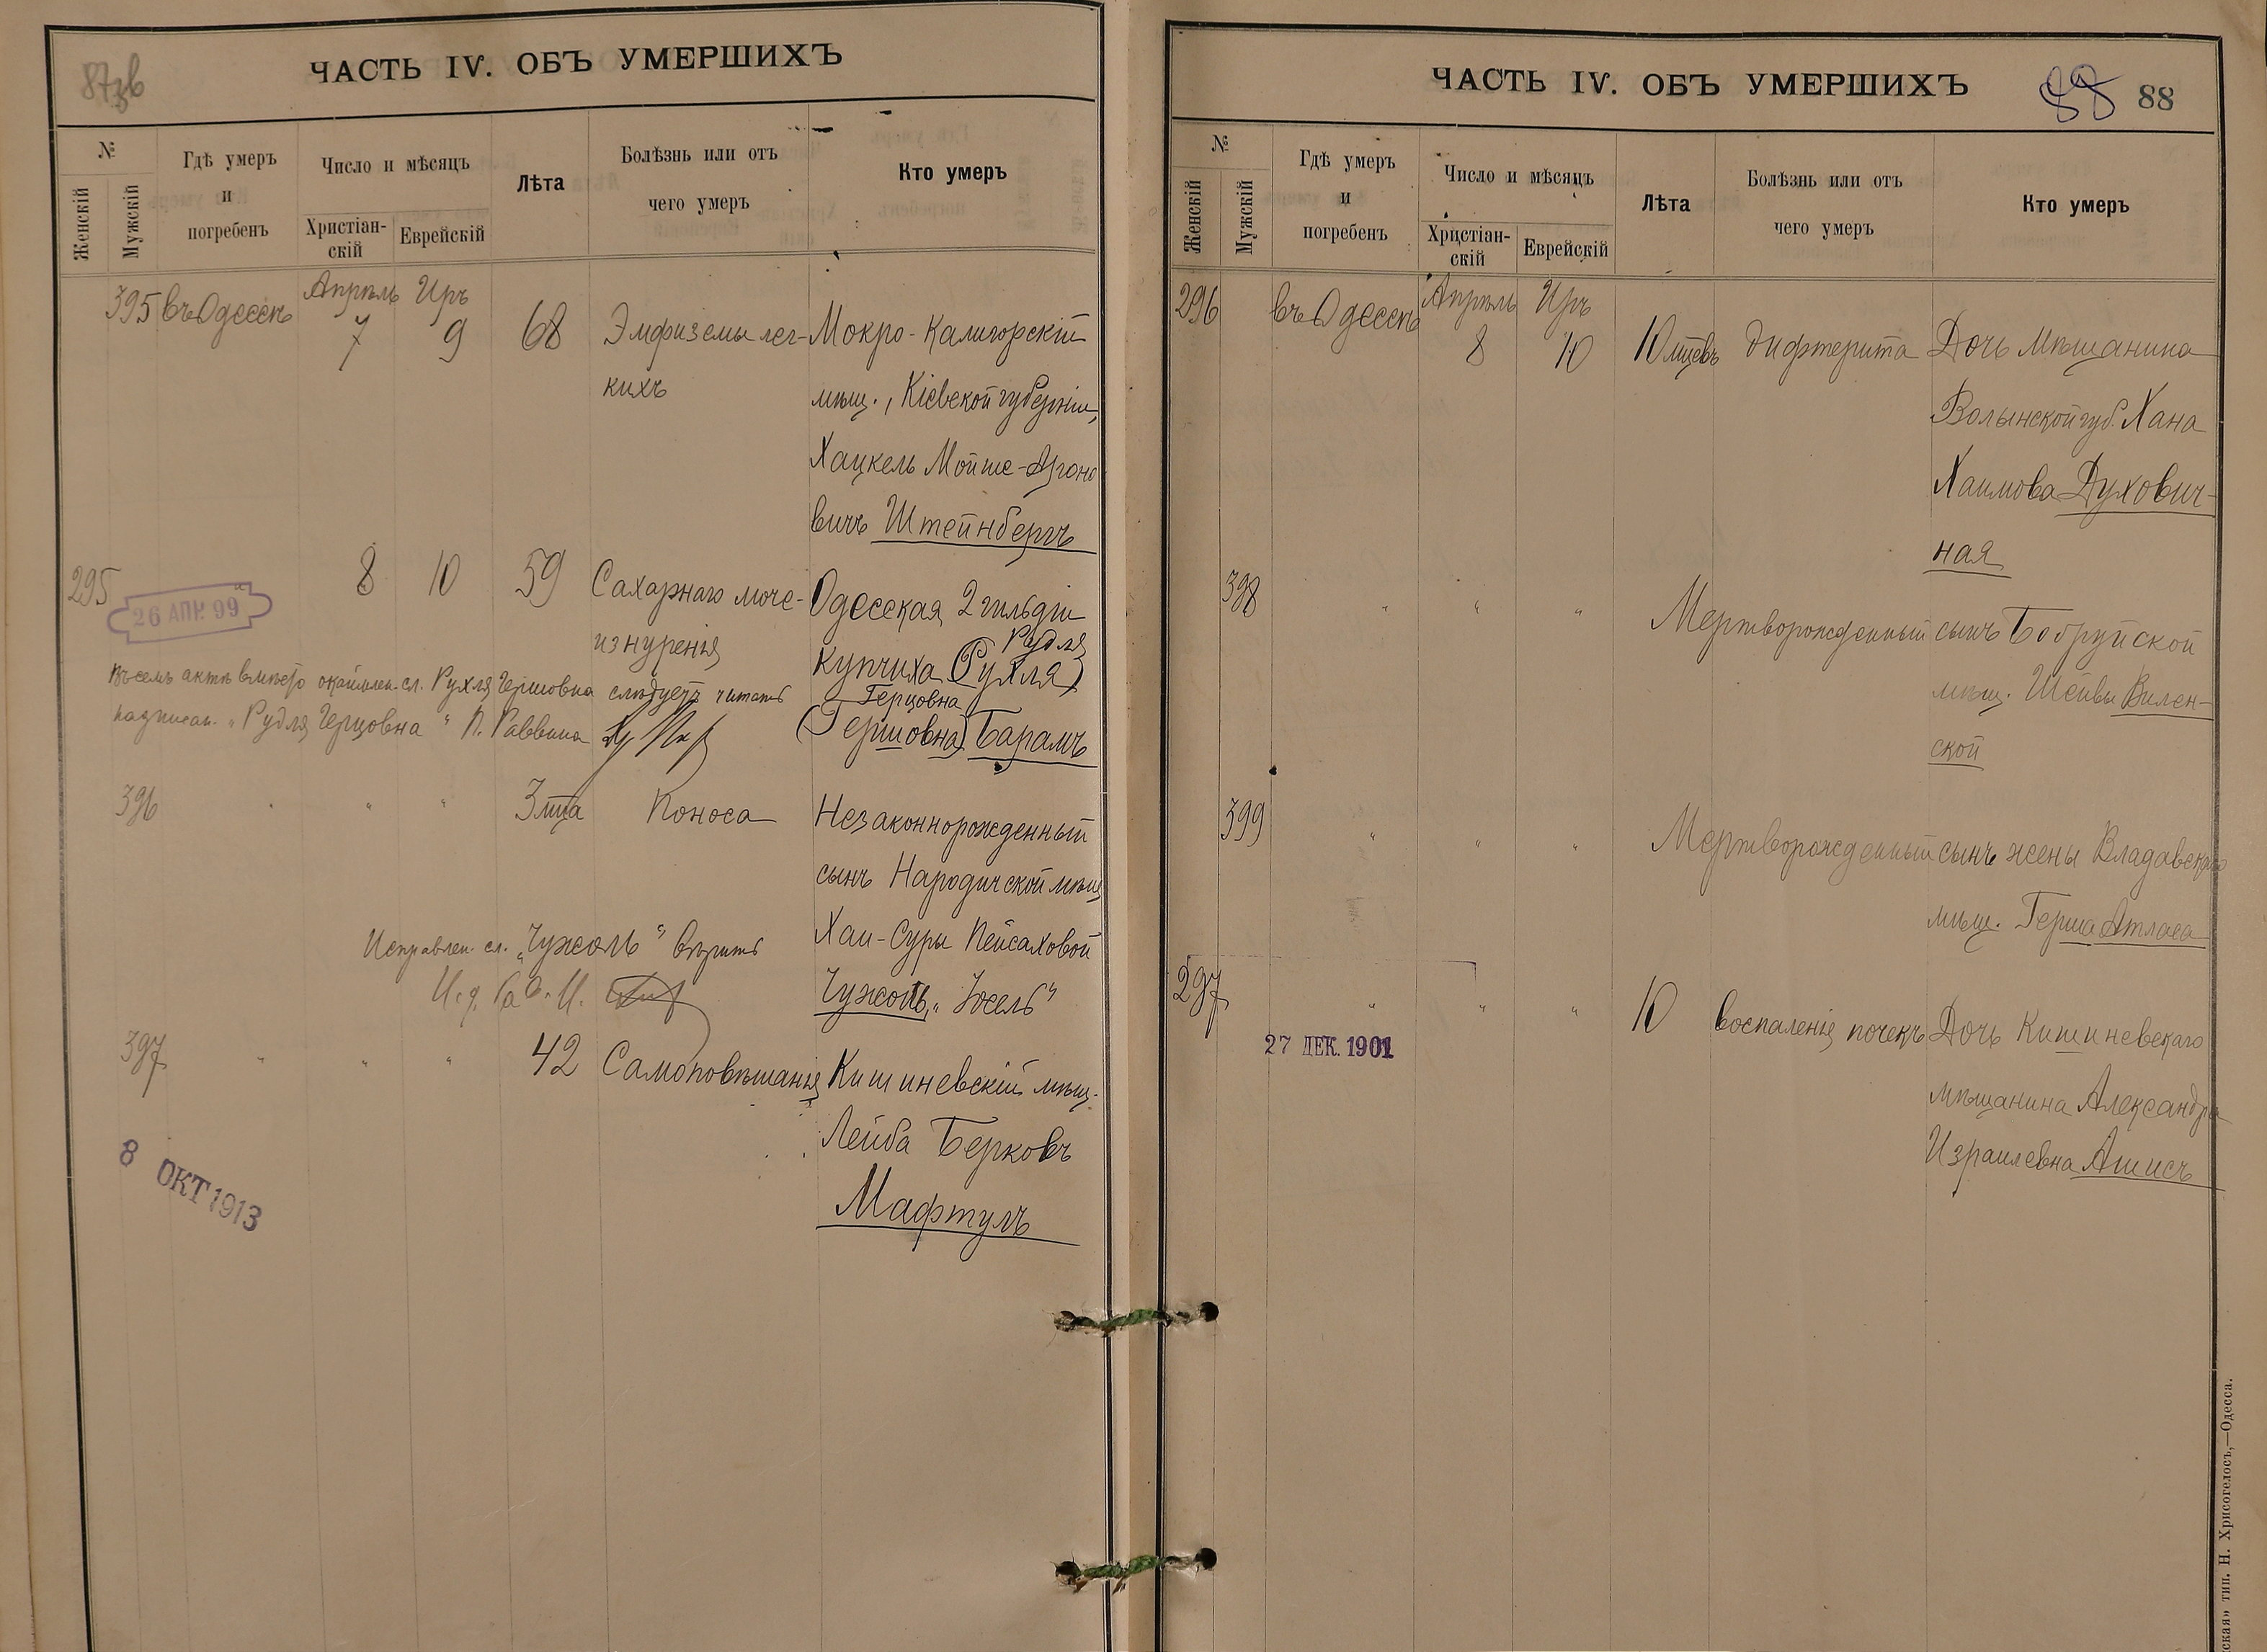 87зв
ЧАСТЬ IV. ОБЪ УМЕРШИХЪ
№
Женскій
Мужскій
Гдѣ умеръ
и
погребенъ
Число и мѣсяцъ
Христіан-
скій
Еврейскій
Лѣта
Болѣзнь или отъ
чего умеръ
Кто умеръ
395 въ Одессѣ Апрѣль Иръ
7 9 68 Эмфиземы лег- Мокро-Калигорскій
кихъ мѣщ., Кіевской губерніи,
Хацкель Мойше-Ароно
вичъ Штейнбергъ
295 8 10 59 Сахарнаго моче- Одесская 2 гильдіи
26 АПР. 99
изнуренія Рудля
купчиха (Рухля)
Герцовна
(Гершовна) Барамъ
Въ семъ актѣ вмѣсто окаймлен. сл. Рухля Гершовна слѣдуетъ читать
надписан. „Рудля Герцовна“ П. Раввина
396 " " " 3 мца Поноса Незаконнорожденный
сынъ Народичской мѣщ
Хаи-Суры Пейсаховой
Чужой, „Іосель“
Исправлен. сл. вѣрить
397 " " " 42 Самоповѣшанія Кишиневскій мѣщ.
Лейба Берковъ
Мафтулъ
8 ОКТ 1913
ЧАСТЬ IV. ОБЪ УМЕРШИХЪ
88 88
№
Женскій
Мужскій
Гдѣ умеръ
и
погребенъ
Число и мѣсяцъ
Христіан-
скій
Еврейскій
Лѣта
Болѣзнь или отъ
чего умеръ
Кто умеръ
296 въ Одессѣ Апрѣль Иръ
8 10 10 мцевъ Дифтерита Дочь мѣщанина
Волынской губ. Хана
Хаимова Духович-
ная
398 " " " Мертворожденный сынъ Бобруйской
мѣщ. Шейвы Вилен-
ской
399 " " " Мертворожденный сынъ жены Владавскаго
мѣщ. Герша Атласа
297 " " " 10 Воспаленія почекъ Дочь Кишиневскаго
27 ДЕК. 1901
мѣщанина Александра
Израилевна Ашисъ
тип. Н. Хрисогелосъ,—Одесса.